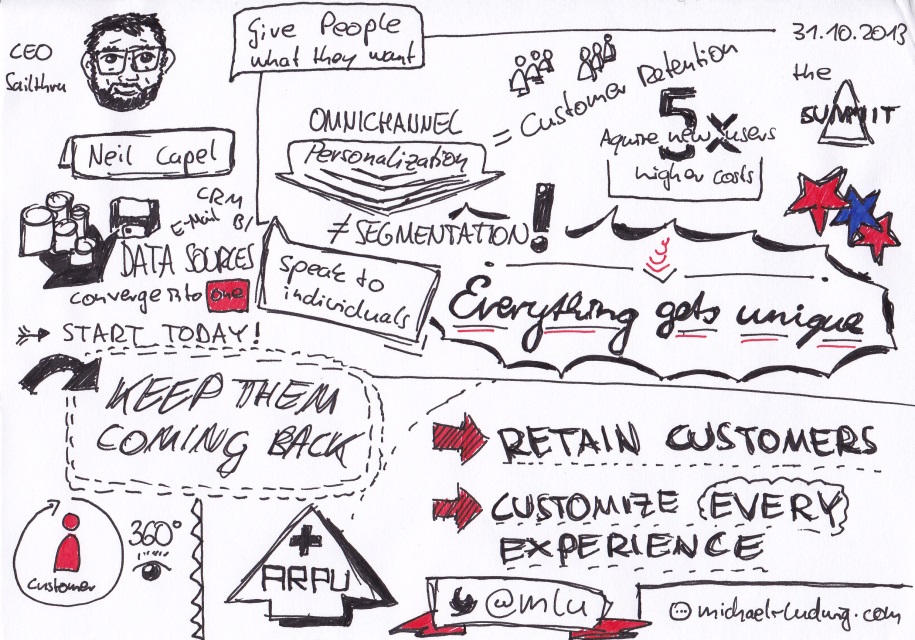 CEO
Sailthru
Give People
what they want
31.10.2013
the
SUMMIT
Neil Capel
OMNICHANNEL
Personalization
= Customer Retention
5x
Aquire new users
higher costs
≠ SEGMENTATION!
CRM
E-Mail BI
DATA SOURCES
converge into one
START TODAY!
Speak to
individuals
Everything gets unique
KEEP THEM
COMING BACK
RETAIN CUSTOMERS
CUSTOMIZE EVERY
EXPERIENCE
360°
Customer
+
ARPU
@mlu
michael-ludwig.com